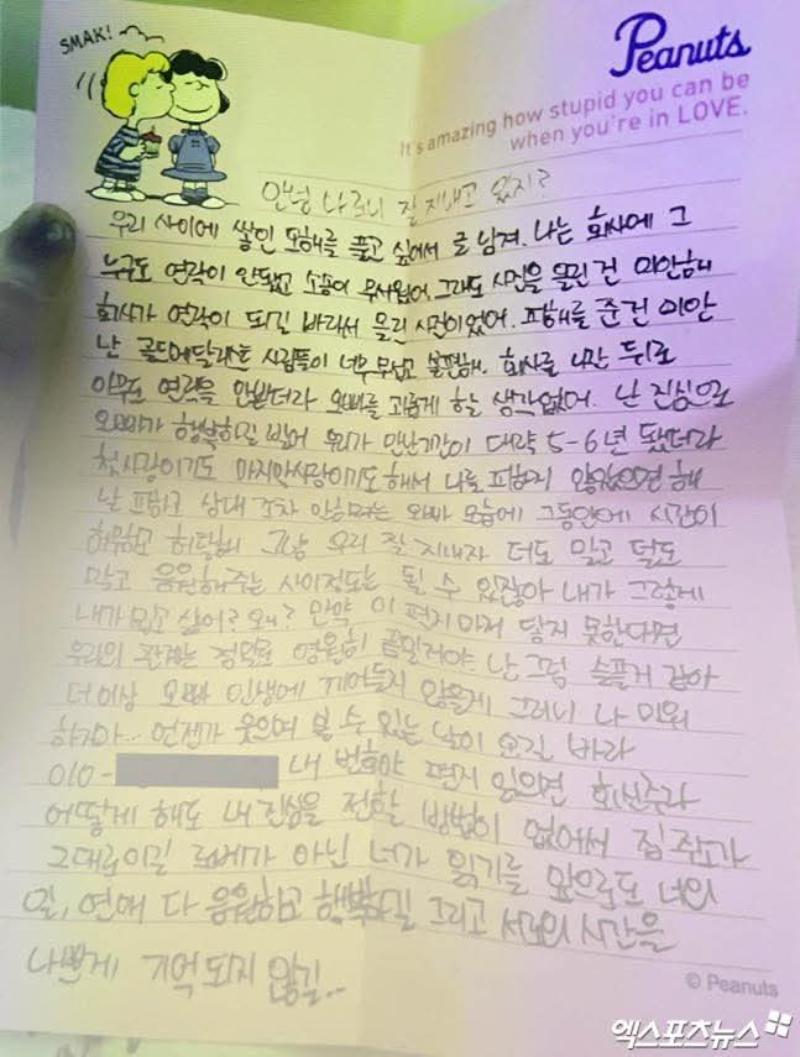 SMAK!
Peanuts
It's amazing how stupid you can be
when you're in LOVE.
안녕 나 잘 지내고 있지?
우리 사이에 쌓인 오해를 풀고 싶어서 글 남겨. 나는 회사에 그
누구도 연락이 안됐고 소송이 무서웠어. 그래도 사진을 올린 건 미안해
회사가 연락이 되길 바라서 올린 사진이었어. 피해를 준건 미안
난 골드메달리스트 사람들이 너무 무섭고 불편해. 회사를 나간 뒤로
아무도 연락을 안받더라 오빠를 괴롭게 하는 생각없어. 난 진심으로
오빠가 행복하길 빌어 우리가 만난기간이 대략 5-6년 됐더라
첫사랑이기도 마지막사랑이기도 해서 나를 피하지 않았으면 해
날 피하고 상대 조차 안하려는 오빠 모습에 그동안에 시간이
허무하고 허탈해 그냥 우리 잘 지내자 더도 말고 덜도
말고 응원해주는 사이정도는 될 수 있잖아 내가 그렇게
내가 밉고 싫어? 왜? 만약 이 편지마저 닿지 못한다면
우리의 관계는 정말로 영원히 끝일거야 난 그럼 슬플거 같아
더이상 오빠 인생에 끼어들지 않을게 그러니 나 미워
하지마.. 언젠가 웃으며 볼 수 있는 날이 오길 바라
010- 내 번호야 편지 읽으면 회신주라
어떻게 해도 내 진심을 전할 방법이 없어서 집 주소가
그대로이길 로베가 아닌 너가 읽기를 앞으로도 너의
일, 연애 다 응원하고 행복하길 그리고 서로의 시간을
나쁘게 기억되지 않길..
© Peanuts
엑스포츠뉴스